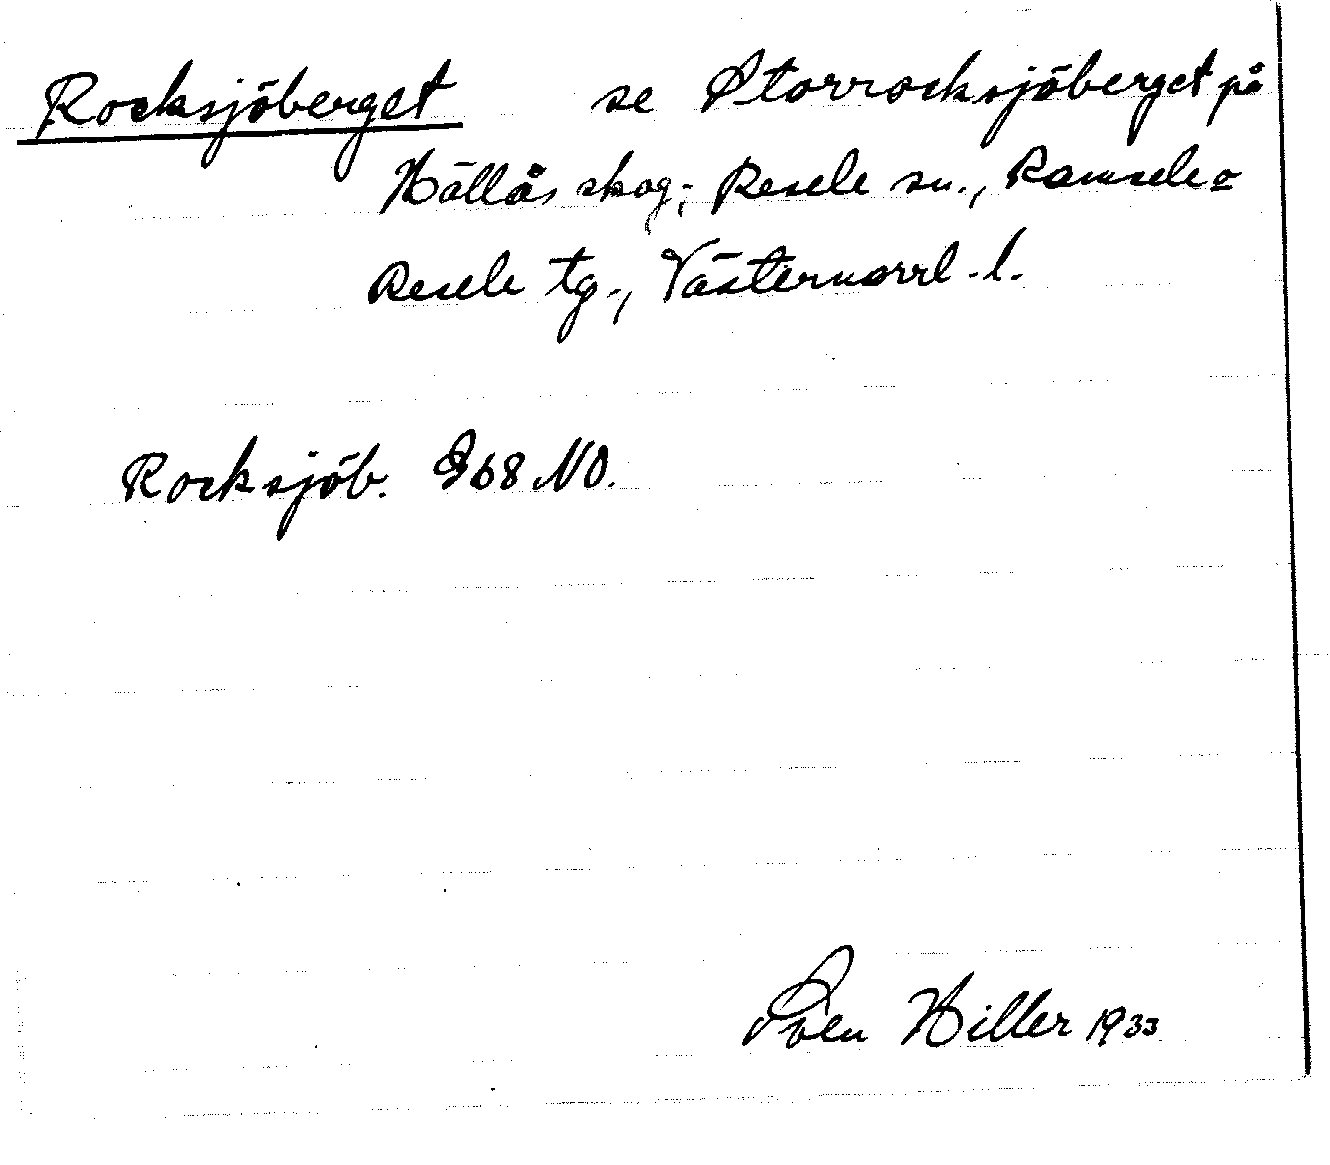 Rocksjöberget se Storrocksjöberget på
Hällås skog; Resele sn., Ramsele=
Resele tg., Västernorrl. l.
Rocksjöb. G68 NO.
Sven Hiller 1933